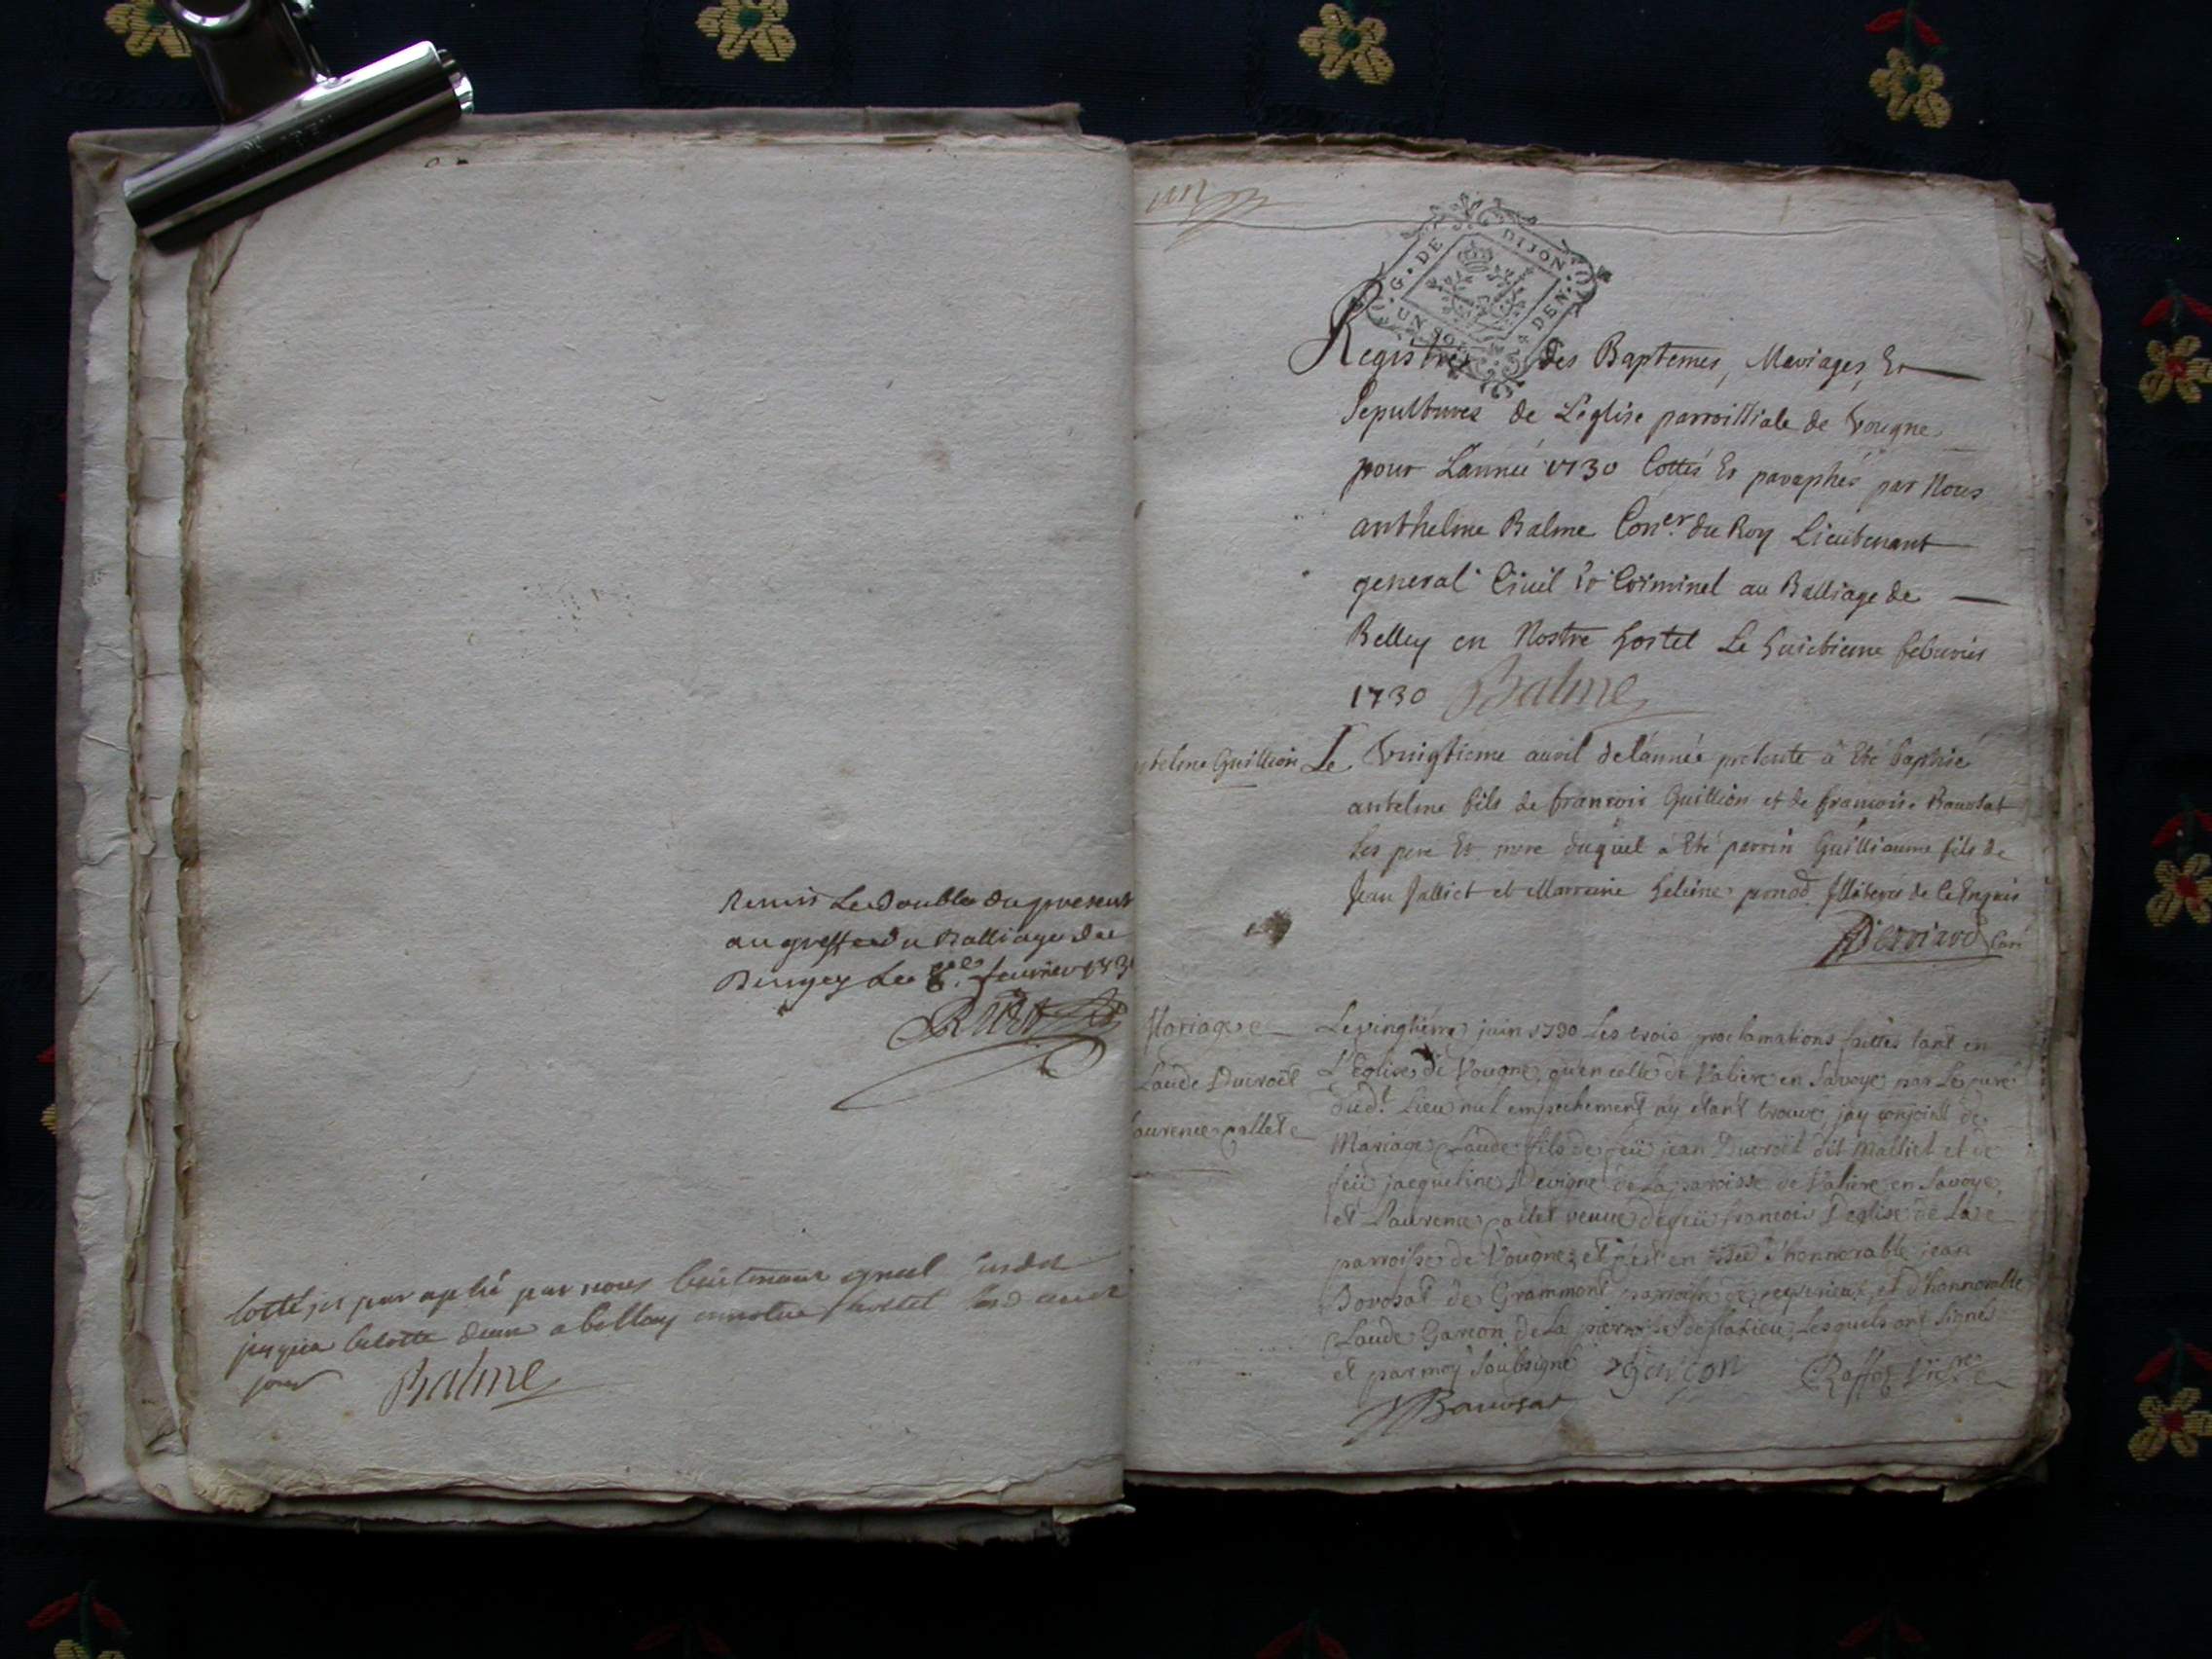 Remis Le double du present
au greffe du Balliage de
Bugey Le 8e. feurier 173
Cotté, et paraphé par nous lieutenant gnal susdit
jusqua a bellay en notre hostel lesd an et
jour Balme
G. DE DIJON
UN SOL DEN.
Registre des Baptemes, Mariages, Et
Sepultures de L'eglise parroissiale de Vougne
pour L'année 1730 Cottés Et paraphés par Nous
anthelme Balme Coner. du Roy Lieutenant
general Ciuil Et Criminel au Balliage de
Belley en Nostre hostel Le huictieme feburier
1730 Balme
ntelme Guillion
Le Vingtieme auril de l'année presente à Eté baptisé
antelme fils de francois Guillion et de francoise Bauosat
Ses pere Et mere duquel à Eté parrin Guilliaume fils de
Jean Jalliet et Marraine heleine ponod Illiterés de ce Enquis
Mariage
Laude Ducroit
aurence pallet
Le vingtieme juin 1730 Les trois proclamations faittes tant en
L'Eglise de Vougne, qu'en celle de Valiere en Savoye par Le curé
dud.t Lieu nul empechement n'y etant trouvé, jay conjoint de
Mariage Claude fils de feü jean Ducroit dit Malliet et de
feüe jacqueline Devigne de La paroisse de Valiere en Savoye
et Laurence pallet veuve de feü francois Deglise de La
parroisse de Vougne, et c'est en d'honnorable jean
Borosat de Grammont parroisse de ceyzerieux, et d'honnorable
Claude Garcon de La parroisse de flaxieu, Lesquels ont signés
et par moy soubsigné Garcon Raffos Vicre
Bauosat